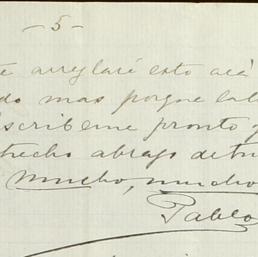 - 5 -
te arreglaré esto acá
do mas porque la
scribeme pronto y
trecho abrazo de tu
mucho, mucho
Pablo